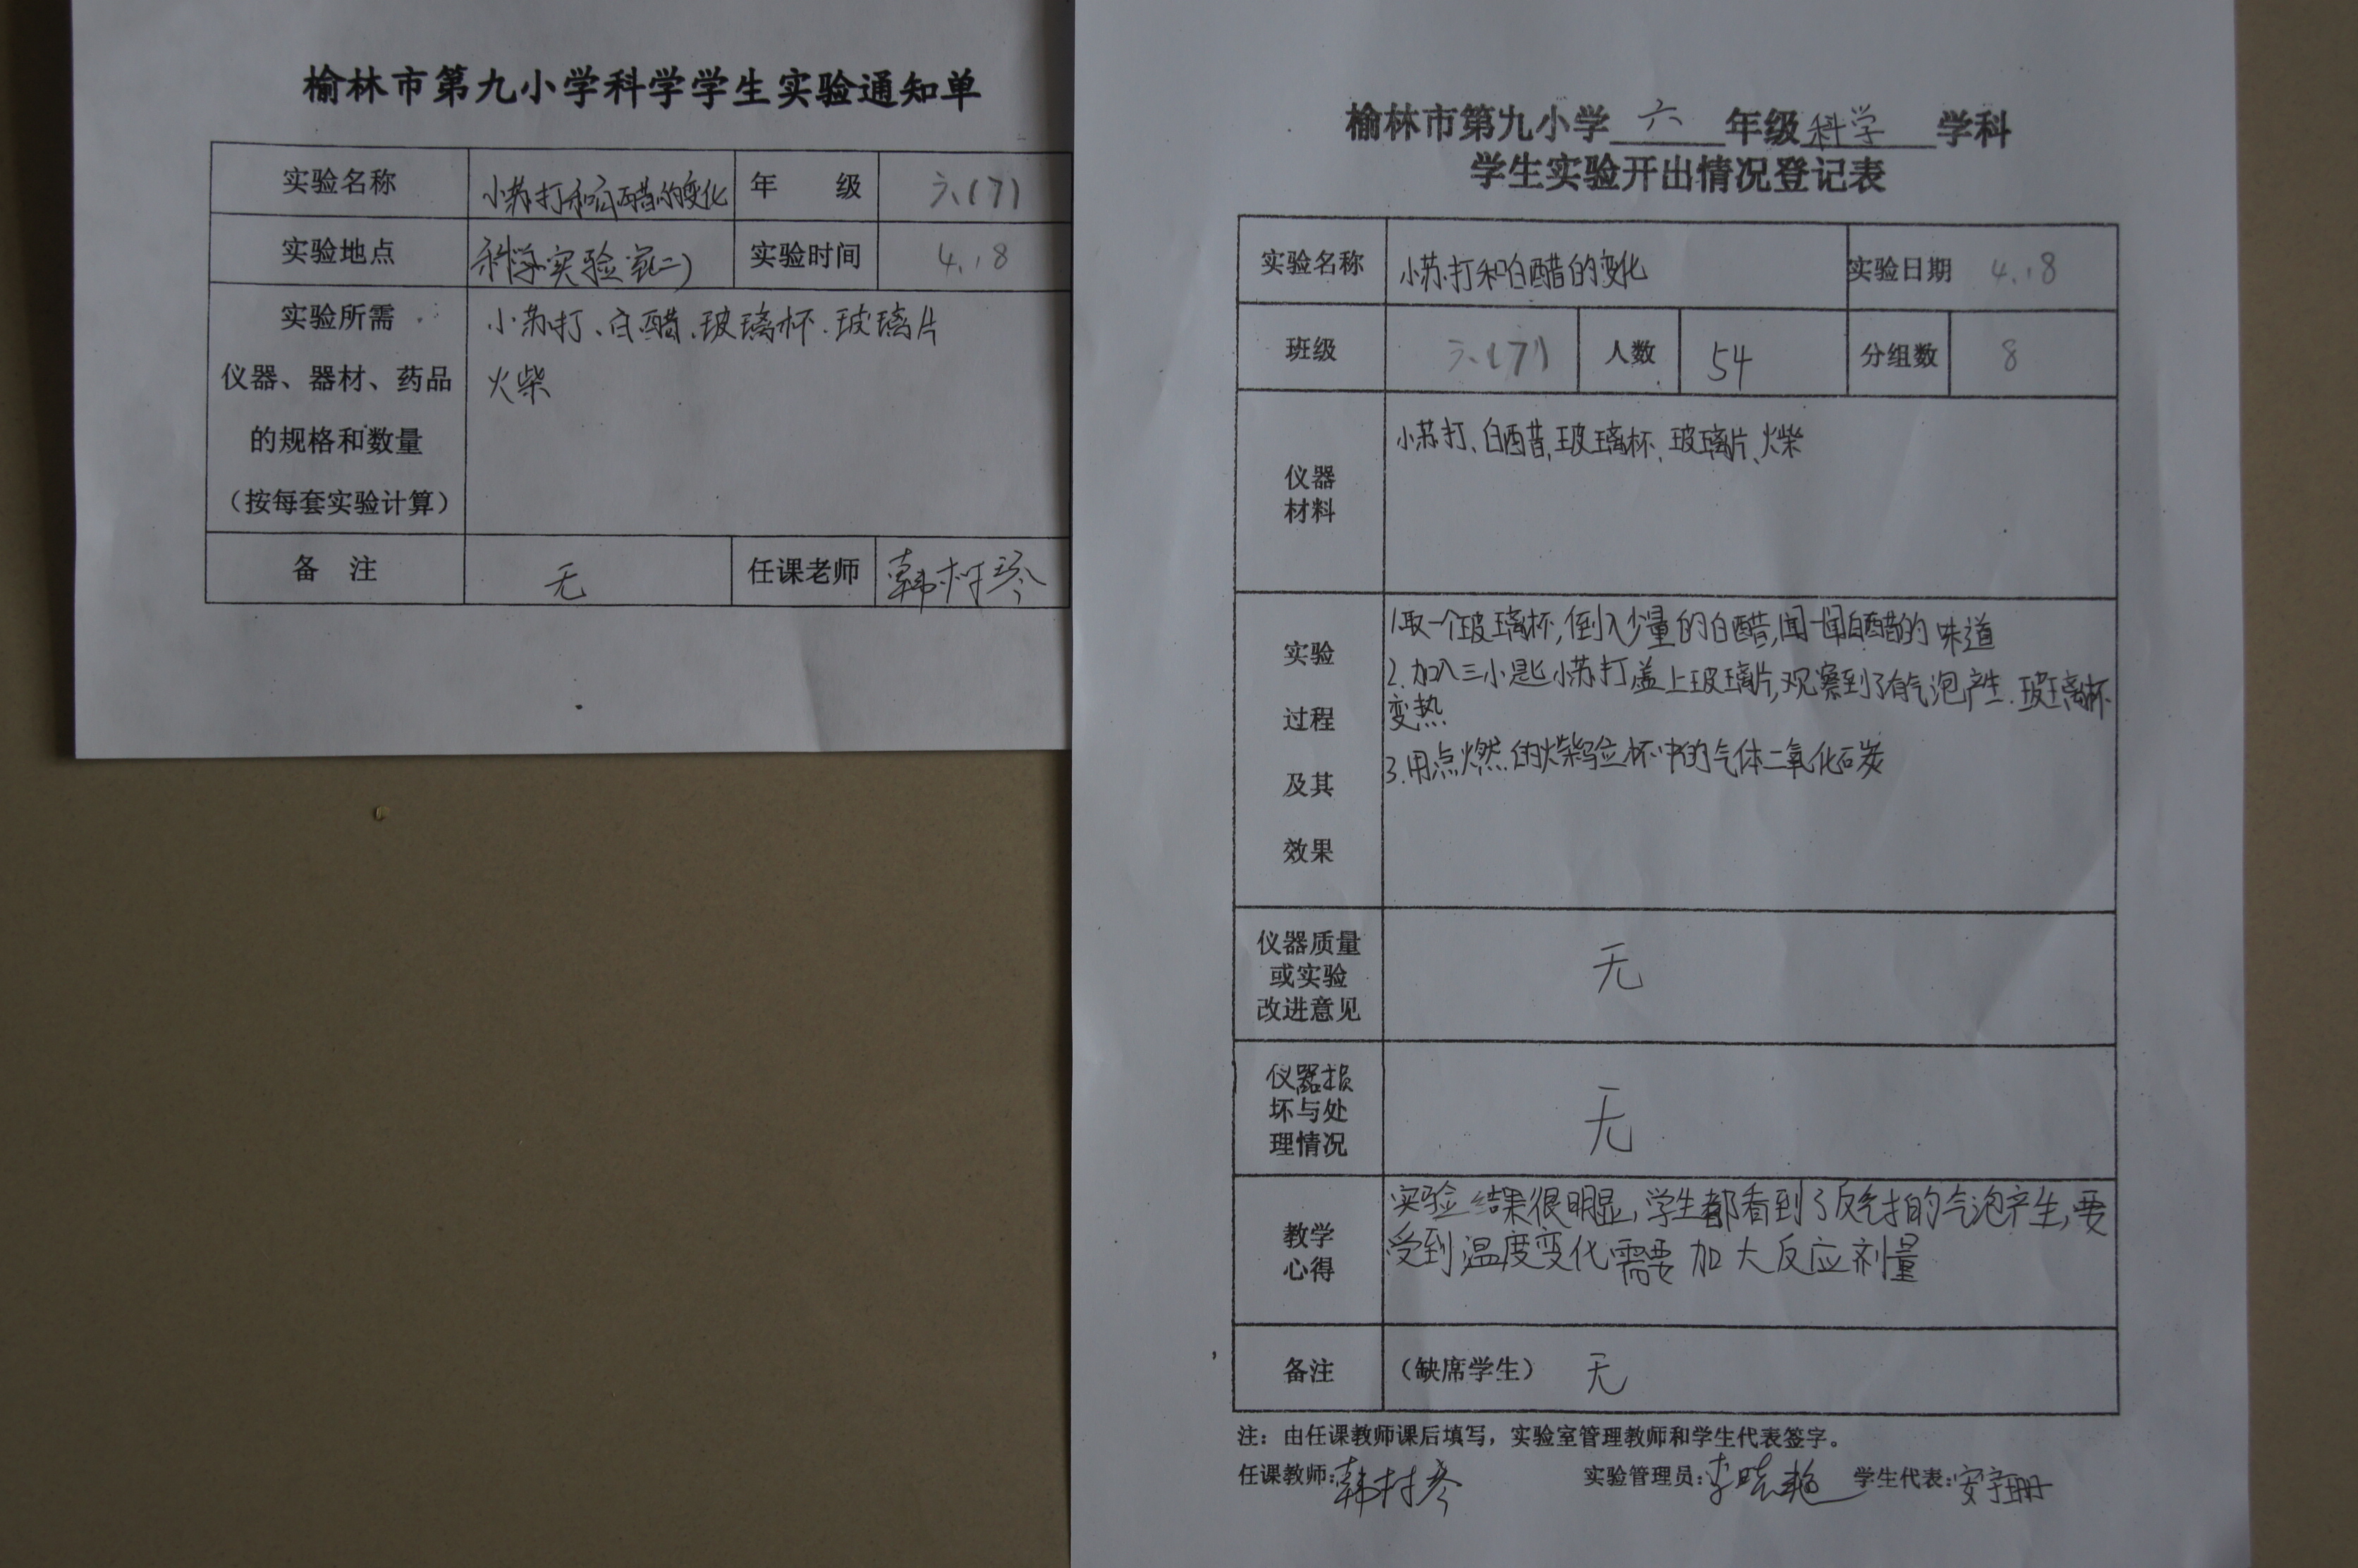 榆林市第九小学科学学生实验通知单
实验名称 小苏打和白醋的变化 年 级 六(7)
实验地点 科学实验室(二) 实验时间 4.18
实验所需 小苏打、白醋、玻璃杯、玻璃片
仪器、器材、药品 火柴
的规格和数量
(按每套实验计算)
备 注 无 任课老师 韩树琴
榆林市第九小学 六 年级 科学 学科
学生实验开出情况登记表
实验名称 小苏打和白醋的变化 实验日期 4.18
班级 六(7) 人数 54 分组数 8
仪器
材料
小苏打、白醋、玻璃杯、玻璃片、火柴
实验
过程
及其
效果
1.取一个玻璃杯,倒入少量的白醋,闻一闻白醋的味道
2.加入三小匙小苏打,盖上玻璃片,观察到了有气泡产生.玻璃杯
变热
3.用点燃的火柴验证杯中的气体二氧化石炭
仪器质量
或实验
改进意见
无
仪器损
坏与处
理情况
无
教学
心得
实验结果很明显,学生都看到了的气泡产生,要
受到温度变化需要加大反应剂量
备注 (缺席学生) 无
注:由任课教师课后填写,实验室管理教师和学生代表签字。
任课教师: 韩树琴 实验管理员: 李晓艳 学生代表: 安